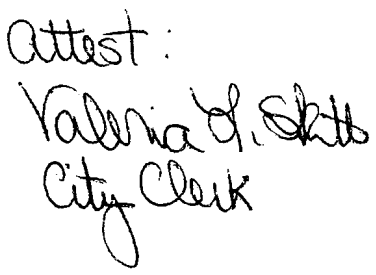 Attest:
Valeria Y. Skitt
City Clerk